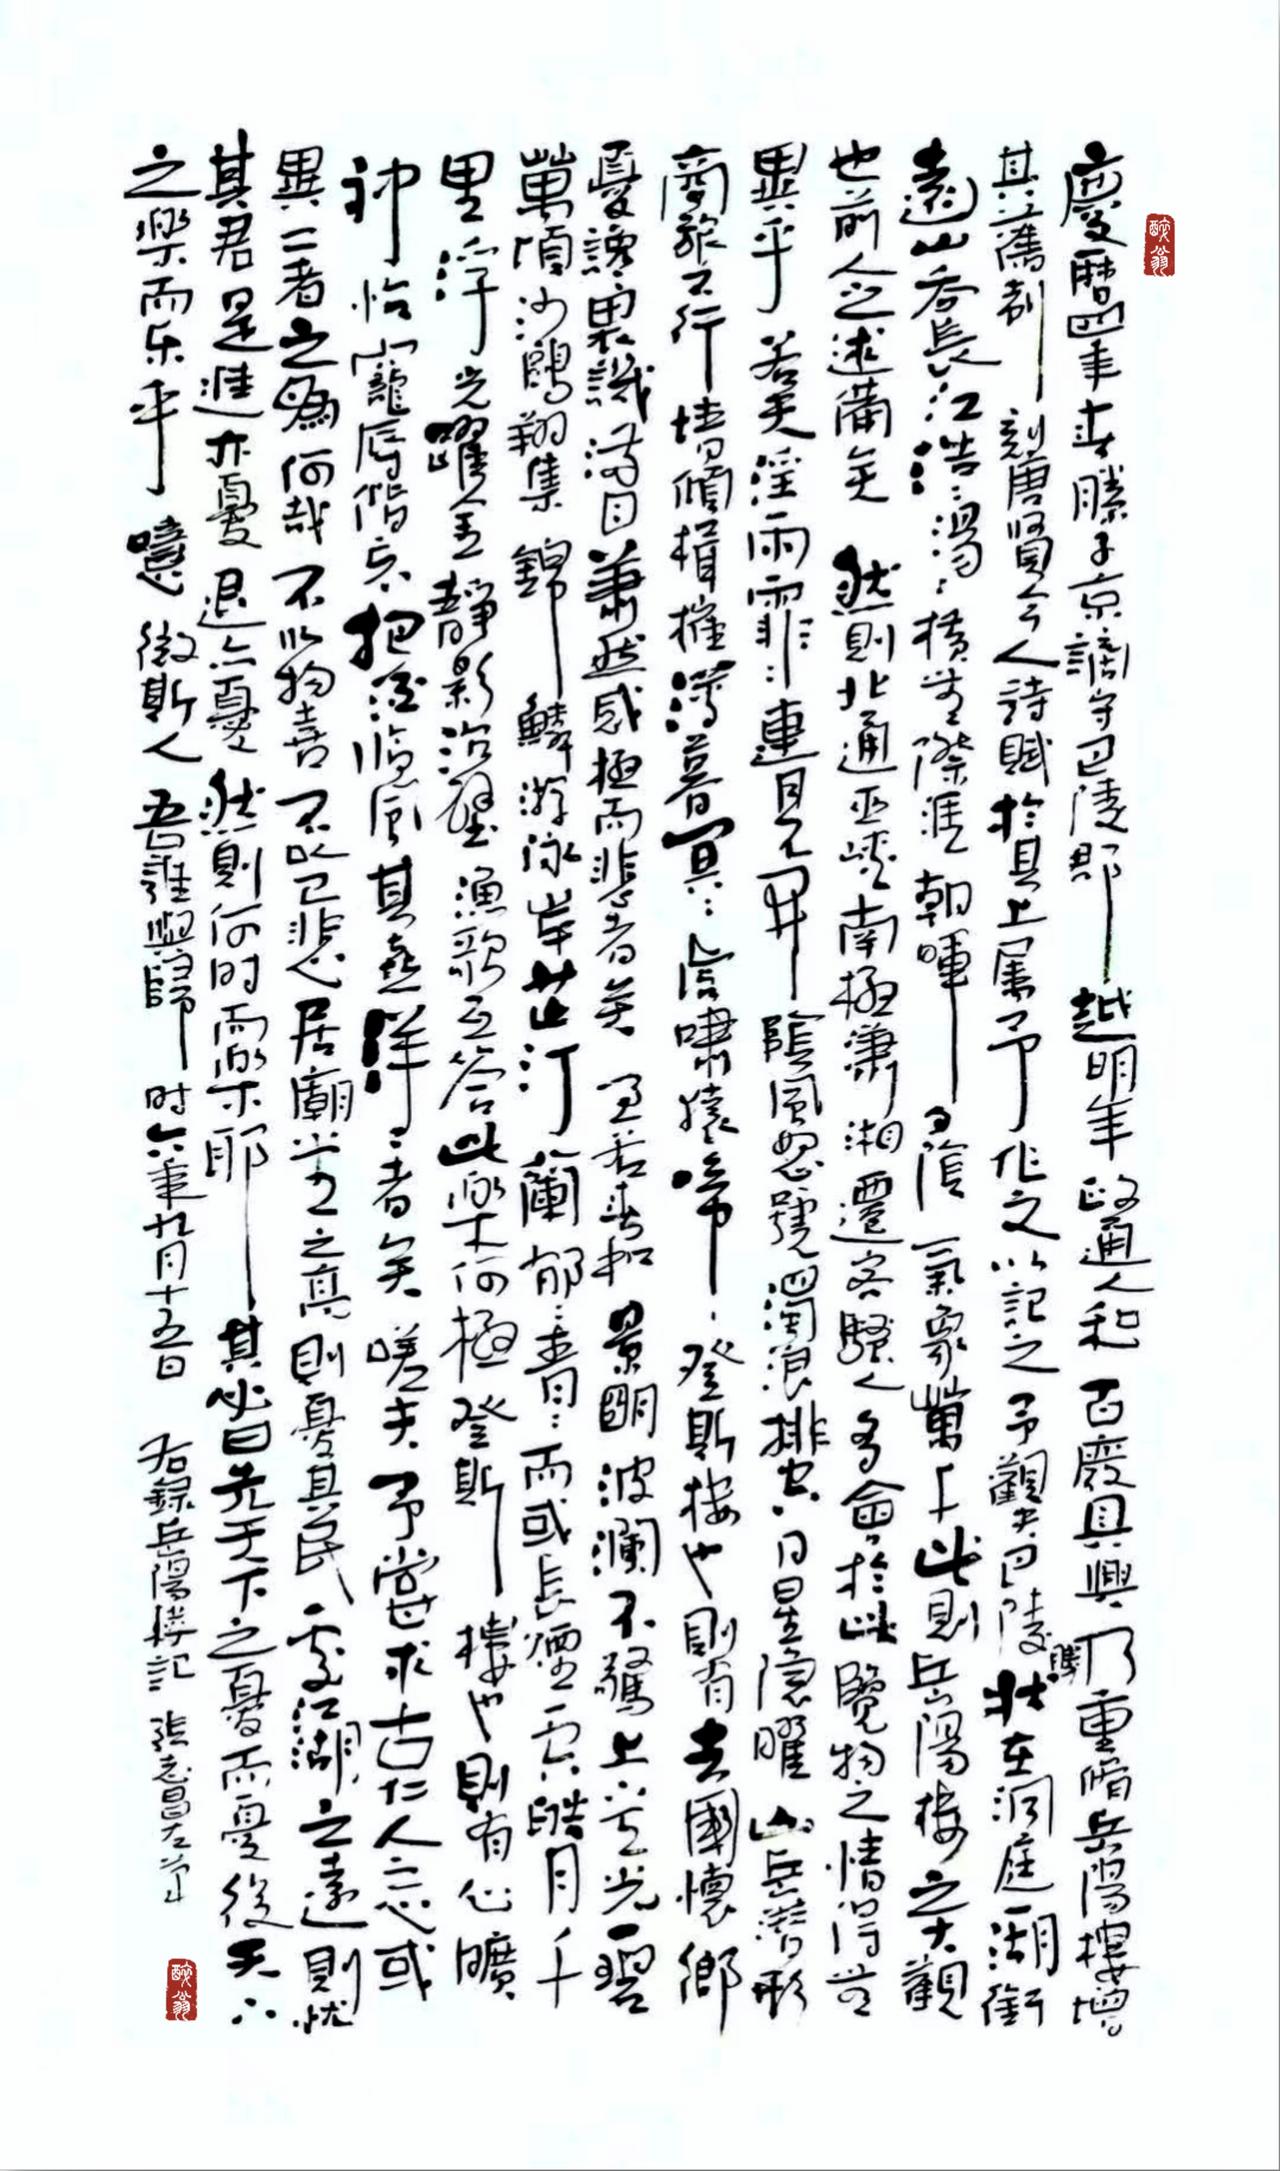 醉翁
慶曆四年春滕子京謫守巴陵郡越明年政通人和百廢具興乃重脩岳陽樓增
其舊制刻唐賢今人詩賦於其上屬予作文以記之予觀夫巴陵勝狀在洞庭一湖銜
遠山吞長江浩浩湯湯橫無際涯朝暉夕陰氣象萬千此則岳陽樓之大觀
也前人之述備矣然則北通巫峽南極瀟湘遷客騷人多會於此覽物之情得無
異乎若夫淫雨霏霏連月不開陰風怒號濁浪排空日星隱曜山岳潛形
商旅不行檣傾楫摧薄暮冥冥虎嘯猿啼登斯樓也則有去國懷鄉
憂讒畏譏滿目蕭然感極而悲者矣至若春和景明波瀾不驚上下天光一碧
萬頃沙鷗翔集錦鱗游泳岸芷汀蘭郁郁青青而或長煙一空皓月千
里浮光躍金靜影沉璧漁歌互答此樂何極登斯樓也則有心曠
神怡寵辱偕忘把酒臨風其喜洋洋者矣嗟夫予嘗求古仁人之心或
異二者之為何哉不以物喜不以己悲居廟堂之高則憂其民處江湖之遠則憂
其君是進亦憂退亦憂然則何时而樂耶其必曰先天下之憂而憂後天下
之樂而乐乎噫微斯人吾誰與歸时六年九月十五日右錄岳陽樓記張志昌左筆
醉翁